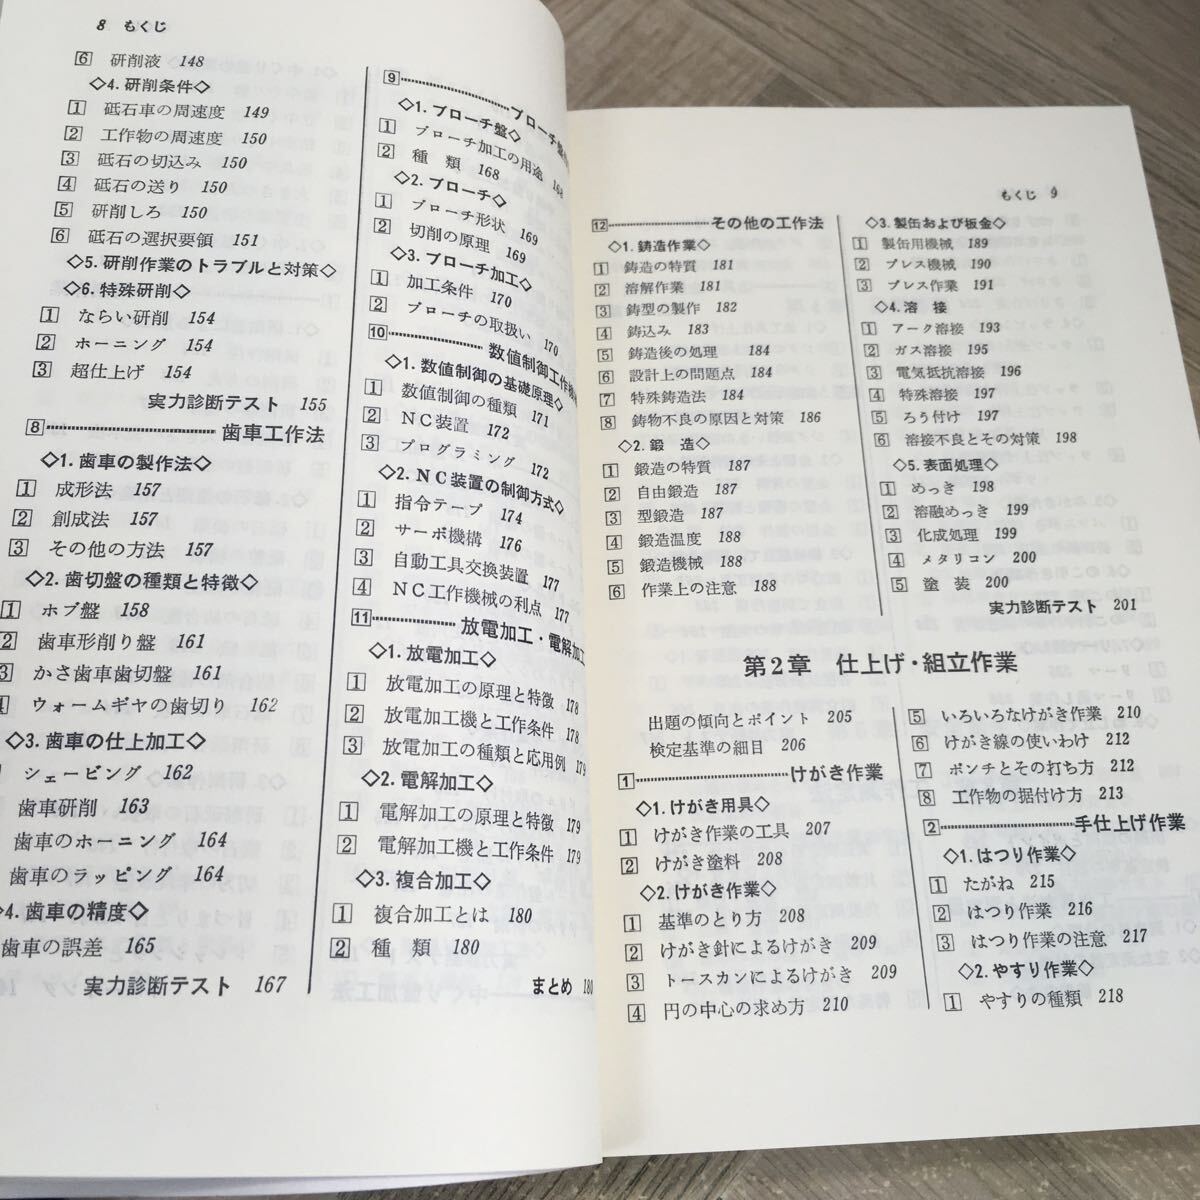 8 もくじ
6 研削液 148
◇4. 研削条件◇
1 砥石車の周速度 149
2 工作物の周速度 150
3 砥石の切込み 150
4 砥石の送り 150
5 研削しろ 150
6 砥石の選択要領 151
◇5. 研削作業のトラブルと対策◇
◇6. 特殊研削◇
1 ならい研削 154
2 ホーニング 154
3 超仕上げ 154
実力診断テスト 155
8 歯車工作法
◇1. 歯車の製作法◇
1 成形法 157
2 創成法 157
3 その他の方法 157
◇2. 歯切盤の種類と特徴◇
1 ホブ盤 158
2 歯車形削り盤 161
3 かさ歯車歯切盤 161
4 ウォームギヤの歯切り 162
◇3. 歯車の仕上加工◇
シェービング 162
歯車研削 163
歯車のホーニング 164
歯車のラッピング 164
◇4. 歯車の精度◇
歯車の誤差 165
実力診断テスト 167
9 ブローチ盤
◇1. ブローチ盤◇
1 ブローチ加工の用途 168
2 種類 168
◇2. ブローチ◇
1 ブローチ形状 169
2 切削の原理 169
◇3. ブローチ加工◇
1 加工条件 170
2 ブローチの取扱い 170
10 数値制御工作機
◇1. 数値制御の基礎原理◇
1 数値制御の種類 171
2 NC装置 172
3 プログラミング 172
◇2. NC装置の制御方式◇
1 指令テープ 174
2 サーボ機構 176
3 自動工具交換装置 177
4 NC工作機械の利点 177
11 放電加工・電解加工
◇1. 放電加工◇
1 放電加工の原理と特徴 178
2 放電加工機と工作条件 178
3 放電加工の種類と応用例 179
◇2. 電解加工◇
1 電解加工の原理と特徴 179
2 電解加工機と工作条件 179
◇3. 複合加工◇
1 複合加工とは 180
2 種類 180
まとめ 180
もくじ 9
12 その他の工作法
◇1. 鋳造作業◇
1 鋳造の特質 181
2 溶解作業 181
3 鋳型の製作 182
4 鋳込み 183
5 鋳造後の処理 184
6 設計上の問題点 184
7 特殊鋳造法 184
8 鋳物不良の原因と対策 186
◇2. 鍛造◇
1 鍛造の特質 187
2 自由鍛造 187
3 型鍛造 187
4 鍛造温度 188
5 鍛造機械 188
6 作業上の注意 188
◇3. 製缶および板金◇
1 製缶用機械 189
2 プレス機械 190
3 プレス作業 191
◇4. 溶接◇
1 アーク溶接 193
2 ガス溶接 195
3 電気抵抗溶接 196
4 特殊溶接 197
5 ろう付け 197
6 溶接不良とその対策 198
◇5. 表面処理◇
1 めっき 198
2 溶融めっき 199
3 化成処理 199
4 メタリコン 200
5 塗装 200
実力診断テスト 201
第2章 仕上げ・組立作業
出題の傾向とポイント 205
検定基準の細目 206
1 けがき作業
◇1. けがき用具◇
1 けがき作業の工具 207
2 けがき塗料 208
◇2. けがき作業◇
1 基準のとり方 208
2 けがき針によるけがき 209
3 トースカンによるけがき 209
4 円の中心の求め方 210
5 いろいろなけがき作業 210
6 けがき線の使いわけ 212
7 ポンチとその打ち方 212
8 工作物の据付け方 213
2 手仕上げ作業
◇1. はつり作業◇
1 たがね 215
2 はつり作業 216
3 はつり作業の注意 217
◇2. やすり作業◇
1 やすりの種類 218